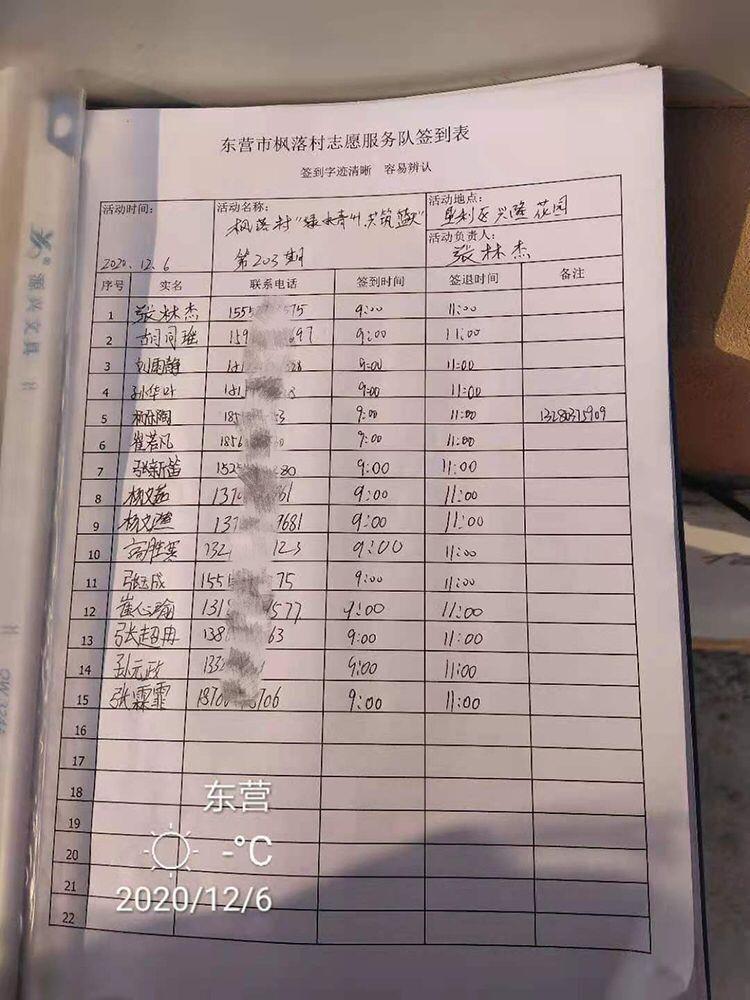 东营市枫落村志愿服务队签到表
签到字迹清晰 容易辨认
活动时间: 活动名称: 活动地点:
枫落村"绿水青州,共筑蓝天" 垦利区兴隆花园
活动负责人:
2020.12.6 第203期 张林杰
序号 实名 联系电话 签到时间 签退时间 备注
1 张林杰 155 575 9:00 11:00
2 159 697 9:00 11:00
3 刘雨静 9:00 11:00
4 孙华叶 9:00 11:00
5 185 53 9:00 11:00 13280315909
6 崔若凡 1856 60 9:00 11:00
7 张新笛 1525 80 9:00 11:00
8 杨文 137 61 9:00 11:00
9 杨文 137 9681 9:00 11:00
10 高胜 132 123 9:00 11:00
11 张玉成 1551 75 9:00 11:00
12 崔 瑜 131 577 9:00 11:00
13 张超冉 138 63 9:00 11:00
14 孙元政 133 9:00 11:00
15 张霖霏 18706 706 9:00 11:00
16
17
18
19
20
21
22
东营
-°C
2020/12/6